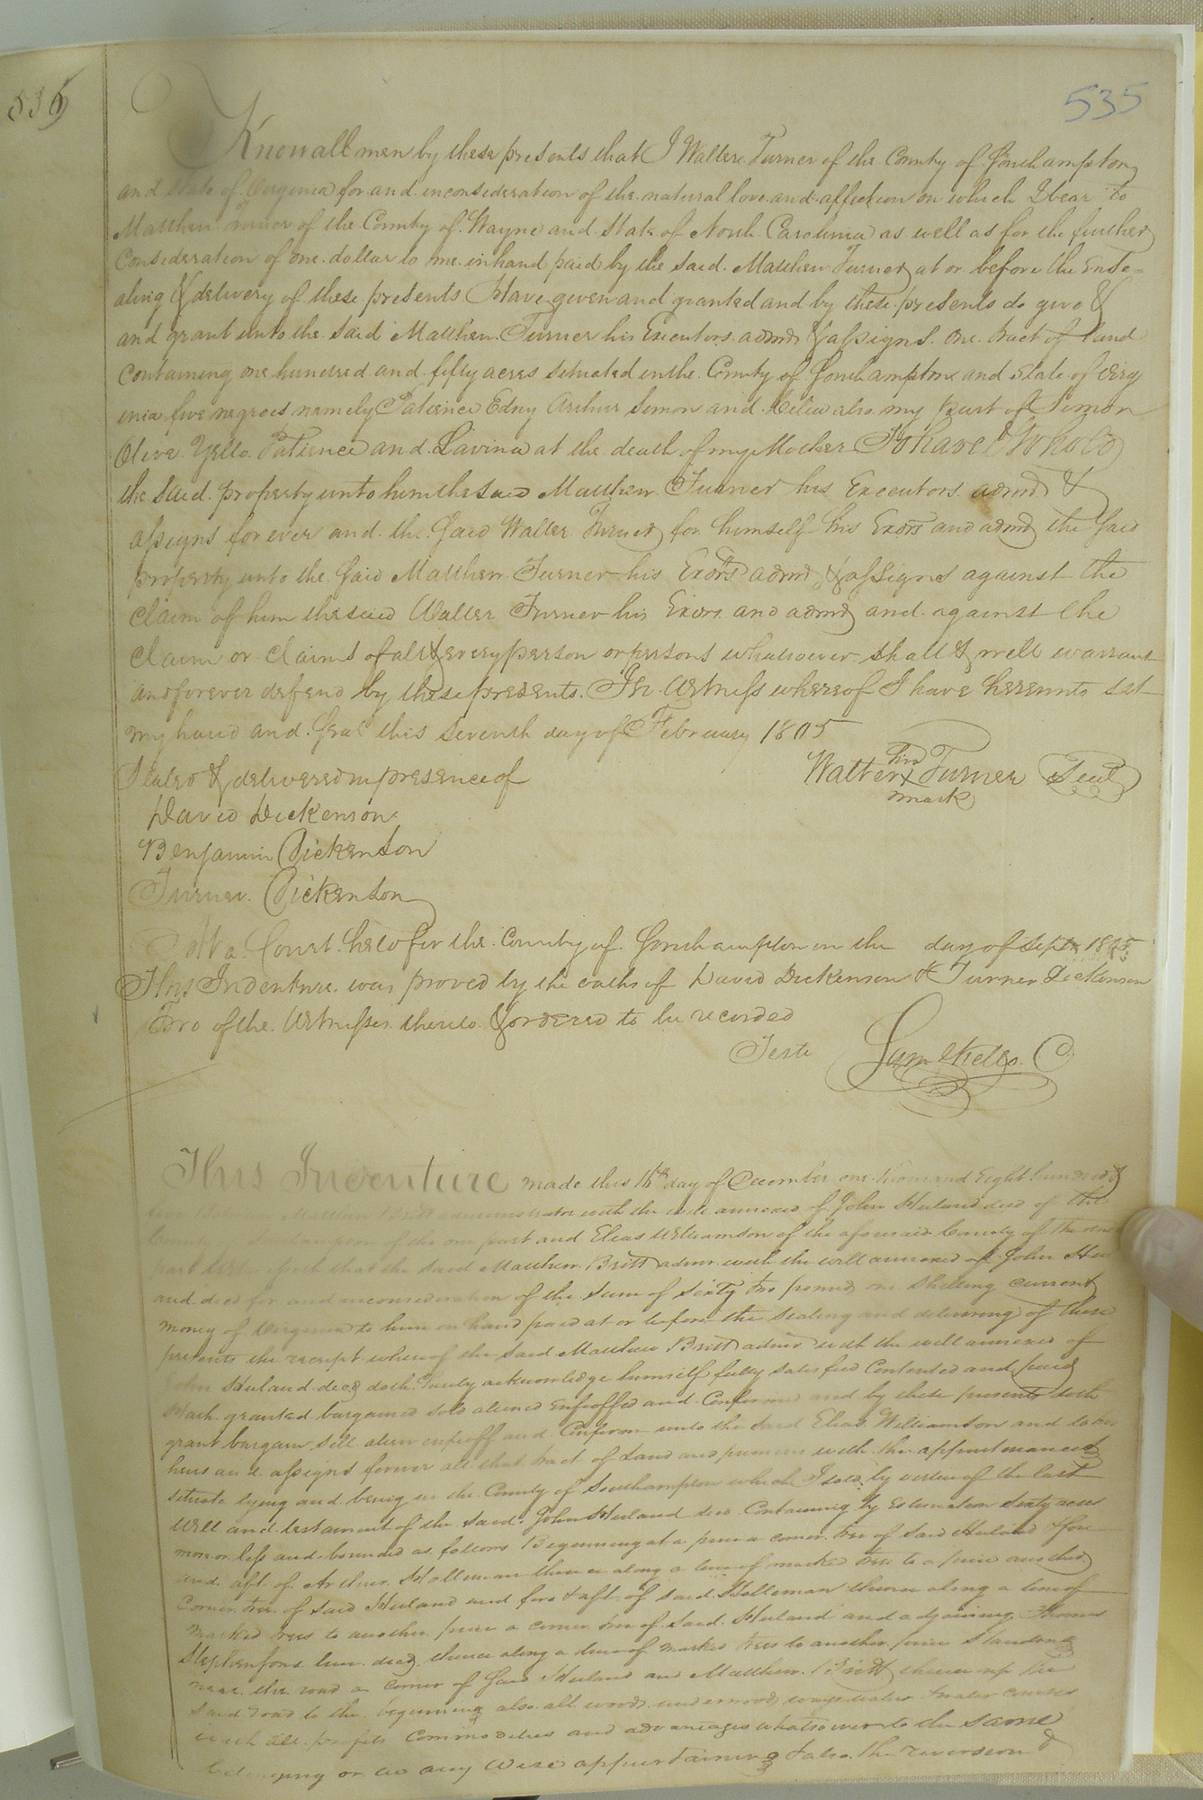 536
535
Know all men by these presents that I Walter Turner of the County of Southampton
and State of Virginia for and in consideration of the natural love and affection on which I bear to
Matthew Turner of the County of Wayne and State of North Carolina as well as for the further
Consideration of one dollar to me in hand paid by the said Matthew Turner at or before the Ense=
aling & delivery of these presents Have given and granted and by these presents do give &
and grant unto the said Matthew Turner his Executors admrs & assigns one tract of land
containing one hundred and fifty acres situated in the County of Southampton and State of Virg
inia five negroes namely Patience Edny Arthur Simon and Celia also my part of Simon
Olive Yello Patience and Lavina at the death of my Mother To have & To hold
the said property unto him the said Matthew Turner his Executors admrs &
assigns forever and the Said Walter Turner for himself his Exors and admrs the Said
property unto the Said Matthew Turner his Exors admrs & assigns against the
Claim of him the said Walter Turner his Exors and admrs and against the
Claim or claims of all & every person or persons whatsoever shall & will warrant
and forever defend by these presents. In Witness whereof I have hereunto set
my hand and Seal this seventh day of February 1805
Sealed & delivered in presence of
Walter his X mark Turner Seal
David Dickenson
Benjamin Dickenson
Turner Dickenson
At a Court held for the County of Southampton on the day of Septr 1805
This Indenture was proved by the oaths of David Dickenson & Turner Dickenson
Two of the Witnesses thereto & ordered to be recorded
Teste Saml Kello C
This Indenture made this 16th day of December one thousand Eight hundred &
Matthew Britt administrator with the will annexed of John Hieland decd of the
County of the one part and Elias Williamson of the aforesaid County of the other
part that the said Matthew Britt admr with the will annexed of John Hie
land decd for and in consideration of the sum of sixty two pounds one shilling current
money of Virginia to him in hand paid at or before the sealing and delivering of these
presents the receipt whereof the said Matthew Britt admr with the will annexed of
John Hieland decd doth hereby acknowledge himself fully satisfied Contented and paid
Hath granted bargained sold aliened enfeoffed and Confirmed and by these presents doth
grant bargain sell alien enfeoff and Confirm unto the said Elias Williamson and to his
heirs and assigns forever all that tract of Land and premises with the appurtenances
situate lying and being in the County of Southampton which I sold by virtue of the last
Will and testament of the said John Hieland decd Containing by Estimation sixty acres
more or less and bounded as follows Beginning at a pine a corner tree of said Hieland & fore
and aft of Arthur Holleman thence along a line of marked trees to a pine another
Corner tree of said Hieland and fore & aft of said Holleman thence along a line of
marked trees to another pine a corner tree of said Hieland and adjoining Thomas
Stephenson's line decd thence along a line of marked trees to another pine Standing
near the road a corner of said Hieland and Matthew Britt thence up the
said road to the beginning also all woods underwoods ways water & water courses
with all profits Commodities and advantages whatsoever to the same
belonging or in any wise appertaining & also the reversion &